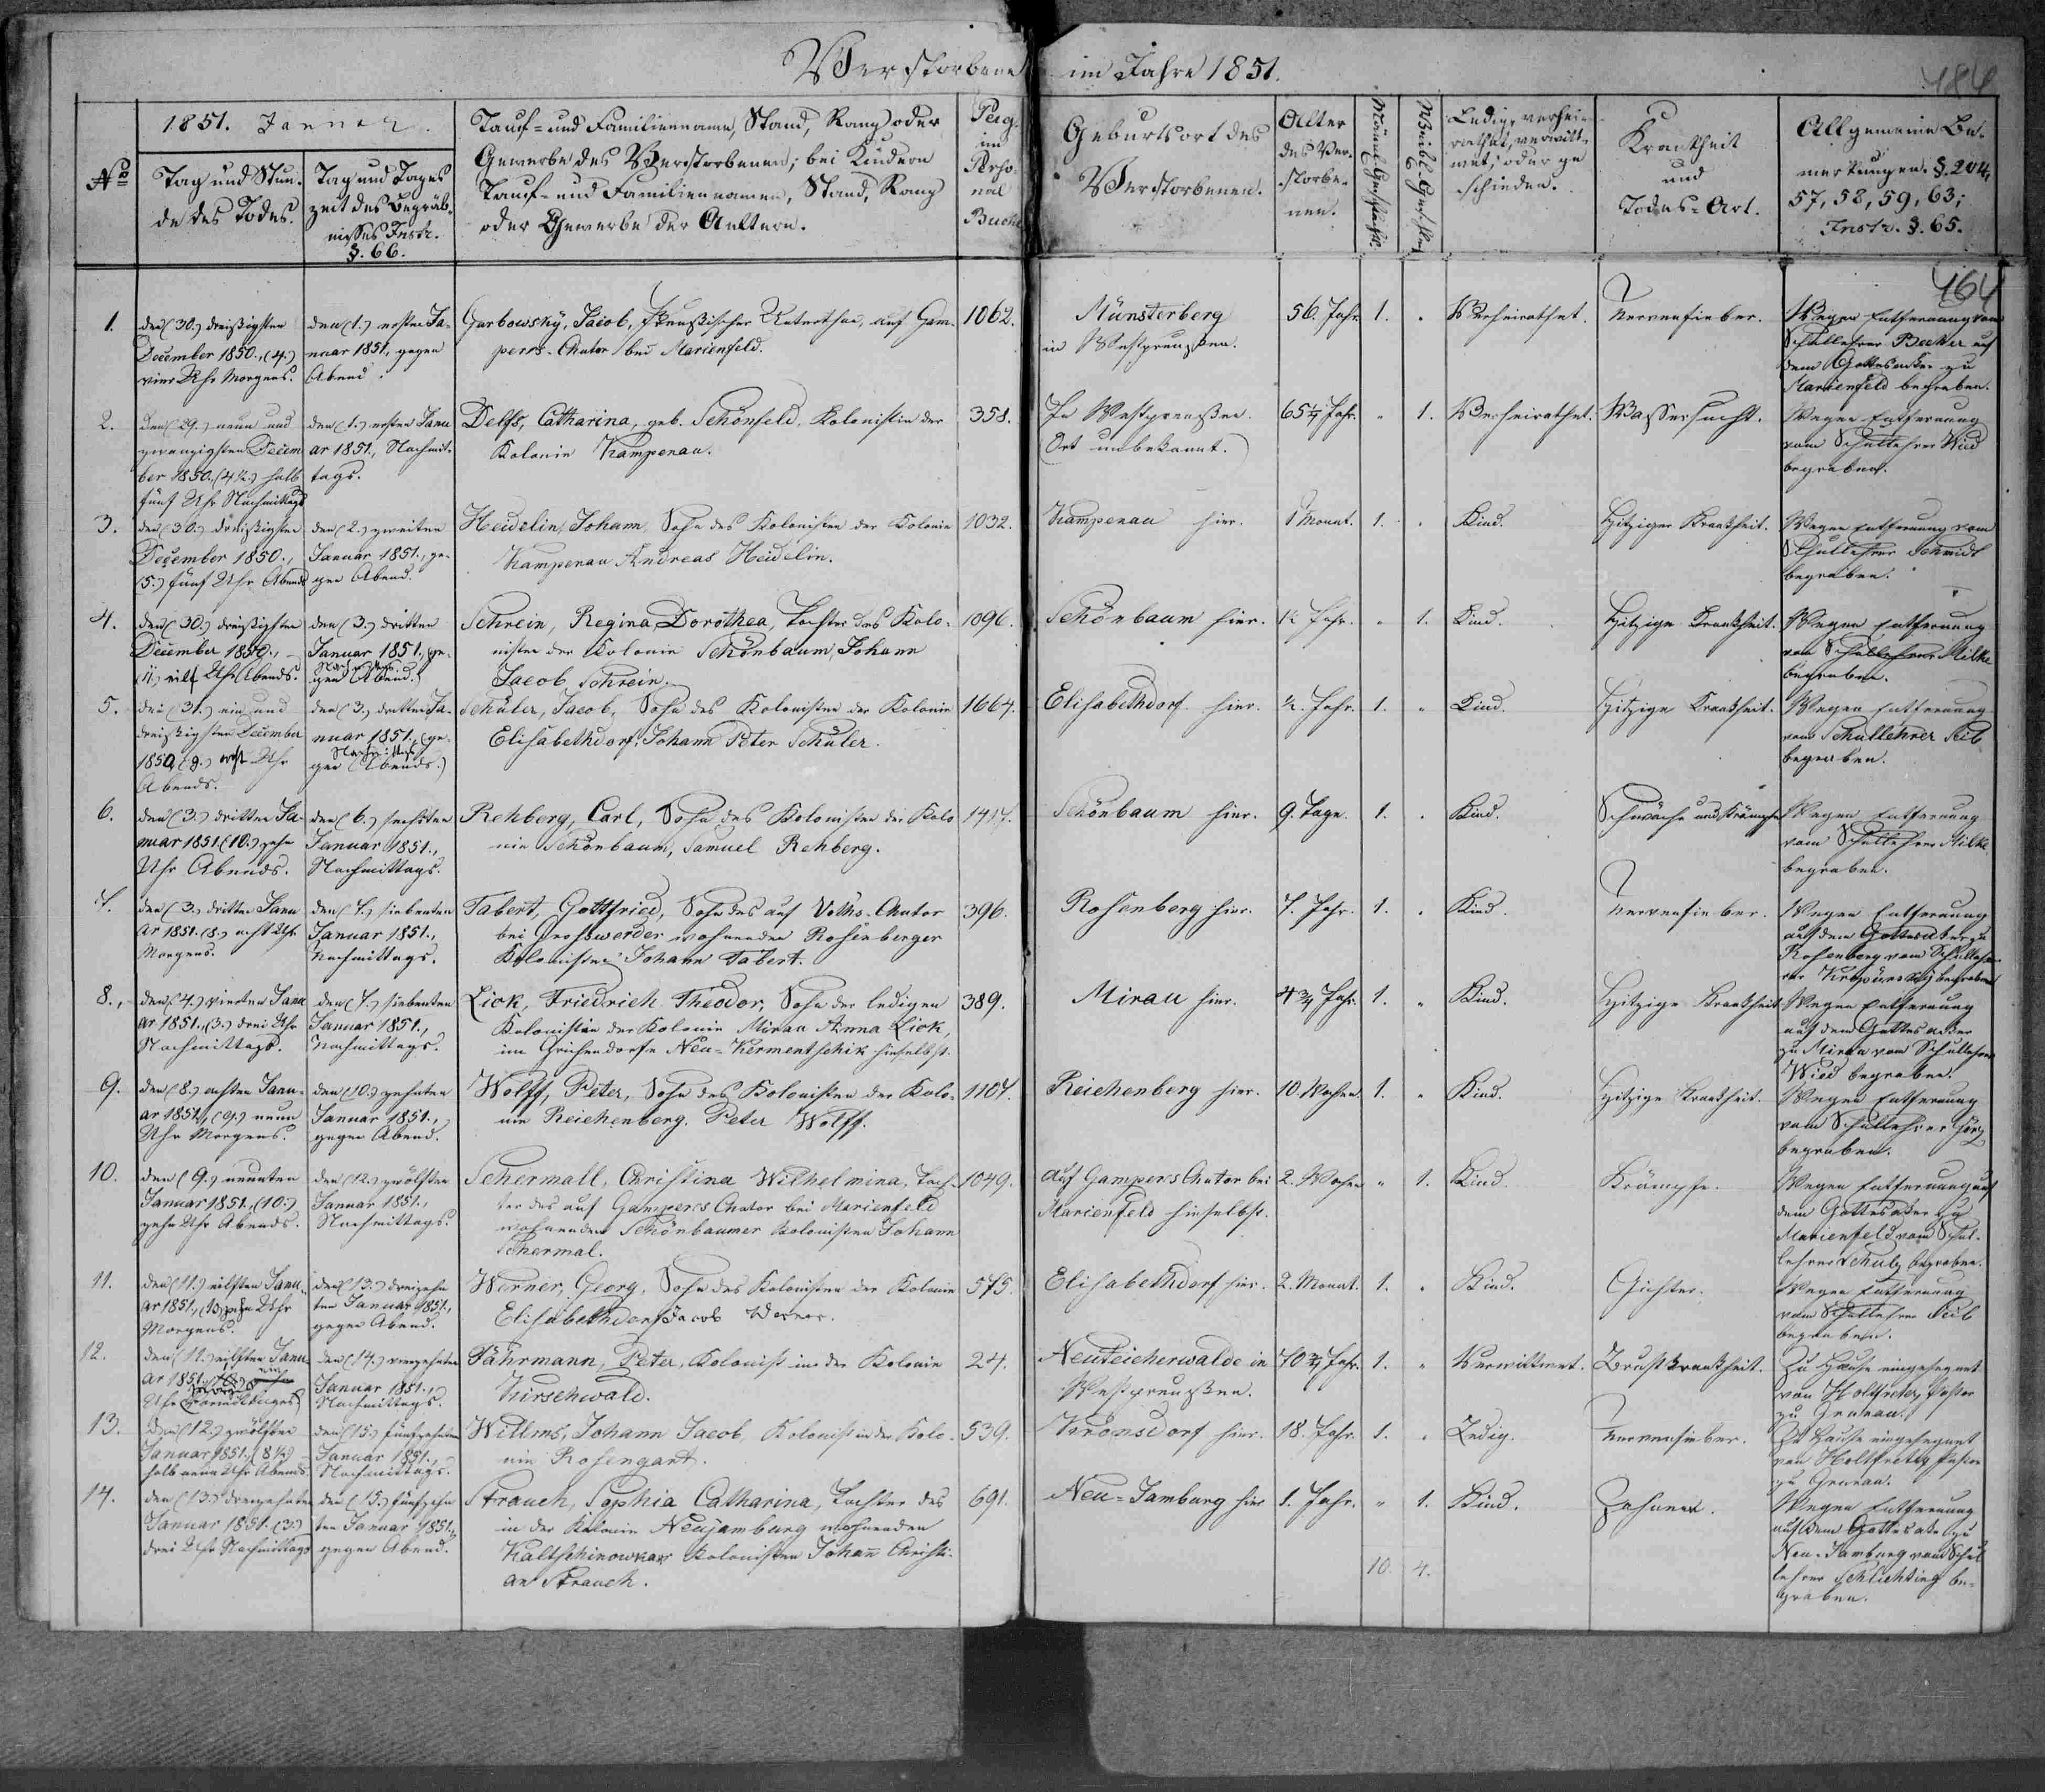 Verstorbene im Jahre 1851.
184
464
№
1851. Januar.
Tag und Stun-
de des Todes.
Tag und Tages
zeit des Begräb-
nisses Instr.
§. 66.
Tauf- und Familienname, Stand, Rang oder
Gewerbe des Verstorbenen; bei Kindern
Tauf- und Familiennamen, Stand, Rang
oder Gewerbe der Aeltern.
Pag.
im
Perso
nal
Buche
Geburtsort des
Verstorbenen.
Alter
des Ver-
storbe-
nen.
Männl. Geschlecht.
Weibl. Geschlecht
Ledig, verhei-
rathet, verwitt-
wet, oder ge
schieden.
Krankheit
und
Todes-Art.
Allgemeine Be-
merkungen. §. 204,
57, 58, 59, 63;
Instr. §. 65.
1.
den (30.) dreißigsten
December 1850., (4.)
vier Uhr Morgens.
den (1.) ersten Ja-
nuar 1851, gegen
Abend.
Garbowsky, Jacob, Preußischer Unterthan, auf Gam-
pers-Chutor bei Marienfeld.
1062.
Münsterberg
in Westpreußen.
56. Jahr
1.
"
Verheirathet.
Nervenfieber.
Wegen Entfernung vom
Schullehrer Becker auf
dem Gottesacker zu
Marienfeld begraben.
2.
den (29.) neun und
zwanzigsten Decem
ber 1850., (4½.) halb
fünf Uhr Nachmittags
den (1.) ersten Janu
ar 1851., Nachmit-
tags.
Delfs, Catharina, geb. Schönfeld, Kolonistin der
Kolonie Kampenau.
358.
In Westpreußen.
(Ort unbekannt.)
65¼ Jahr.
"
1.
Verheirathet.
Wassersucht.
Wegen Entfernung
vom Schullehrer Wied
begraben.
3.
den (30.) dreißigsten
December 1850.,
(5.) fünf Uhr Abends
den (2.) zweiten
Januar 1851., ge-
gen Abend.
Heidelin, Johann, Sohn des Kolonisten der Kolonie
Kampenau Andreas Heidelin.
1032.
Kampenau hier.
1 Monat.
1.
"
Kind.
Hitziger Krankheit.
Wegen Entfernung vom
Schullehrer Schmidt
begraben.
4.
den (30.) dreißigsten
December 1850.,
(11.) eilf Uhr Abends.
den (3.) dritten
Januar 1851., ge-
Nachmittags.
gen Abend.
Schrein, Regina Dorothea, Tochter des Kolo-
nisten der Kolonie Schönbaum, Johann
Jacob Schrein.
1096.
Schönbaum hier.
½ Jahr.
"
1.
Kind.
Hitzige Krankheit.
Wegen Entfernung
vom Schullehrer Milke
begraben.
5.
den (31.) ein und
dreißigsten December
1850, (8.) acht Uhr
Abends.
den (3.) dritten Ja-
nuar 1851., (ge-
Nachmittags
gen Abends.)
Schüler, Jacob, Sohn des Kolonisten der Kolonie
Elisabethdorf, Johann Peter Schüler.
1664.
Elisabethdorf hier.
½. Jahr.
1.
"
Kind.
Hitzige Krankheit.
Wegen Entfernung
vom Schullehrer Seib
begraben.
6.
den (3.) dritten Ja-
nuar 1851. (10.) zehn
Uhr Abends.
den (6.) sechsten
Januar 1851.,
Nachmittags.
Rehberg, Carl, Sohn des Kolonisten der Kolo
nie Schönbaum, Samuel Rehberg.
1417.
Schönbaum hier.
9. Tage.
1.
"
Kind.
Schwäche und Krämpfe
Wegen Entfernung
vom Schullehrer Milke
begraben.
7.
den (3.) dritten Janu
ar 1851. (8.) acht Uhr
Morgens.
den (7.) siebenten
Januar 1851.,
Nachmittags.
Tabert, Gottfried, Sohn des auf Voths-Chutor
bei Grosswerder wohnenden Rosenberger
Kolonisten Johann Tabert.
396.
Rosenberg hier.
7. Jahr.
1.
"
Kind.
Nervenfieber.
Wegen Entfernung
auf dem Gottesacker zu
Rosenberg vom Schulleh-
rer begraben
8.
den (4.) vierten Janu
ar 1851., (3.) drei Uhr
Nachmittags.
den (7.) siebenten
Januar 1851.,
Nachmittags.
Lick, Friedrich Theodor, Sohn der ledigen
Kolonistin der Kolonie Mirau Anna Lick,
im Griechendorfe Neu-Kermentschik hieselbst.
389.
Mirau hier.
4¾ Jahr.
1.
"
Kind.
Hitzige Krankheit
Wegen Entfernung
auf dem Gottesacker
zu Mirau vom Schullehrer
Wied begraben.
9.
den (8.) achten Janu-
ar 1851., (9.) neun
Uhr Morgens.
den (10.) zehnten
Januar 1851.,
gegen Abend.
Wolff, Peter, Sohn des Kolonisten der Kolo-
nie Reichenberg, Peter Wolff.
1104.
Reichenberg hier.
10. Wochen
1.
"
Kind.
Hitzige Krankheit.
Wegen Entfernung
vom Schullehrer
begraben.
10.
den (9.) neunten
Januar 1851., (10.)
zehn Uhr Abends.
den (12.) zwölften
Januar 1851.,
Nachmittags.
Schermall, Christina Wilhelmina, Toch-
ter des auf Gampers Chutor bei Marienfeld
wohnenden Schönbaumer Kolonisten Johann
Schermal.
1049.
Auf Gampers Chutor bei
Marienfeld hieselbst.
2. Wochen
"
1.
Kind.
Krämpfe.
Wegen Entfernung auf
dem Gottesacker zu
Marienfeld vom Schul-
lehrer Schulz begraben.
11.
den (11.) eilften Janu-
ar 1851., (10.) zehn Uhr
Morgens.
den (13.) dreizehn
ten Januar 1851.,
gegen Abend.
Werner, Georg, Sohn des Kolonisten der Kolonie
Elisabethdorf Jacob Werner.
575.
Elisabethdorf hier.
2. Monat.
1.
"
Kind.
Gichter.
Wegen Entfernung
vom Schullehrer Seib
begraben.
12.
den (11.) eilften Janu
ar 1851.
Uhr
den (14.) vierzehnten
Januar 1851.,
Nachmittags.
Fährmann, Peter, Kolonist in der Kolonie
Kirschwald.
24.
Neuteicherwalde in
Westpreußen.
70¾ Jahr.
1.
"
Verwittwet.
Brustkrankheit.
Zu Hause eingesegnet
von Holtfreter, Pastor
zu Grunau.
13.
den (12.) zwölften
Januar 1851., (8½)
halb neun Uhr Abends.
den (15.) fünfzehnten
Januar 1851.,
Nachmittags.
Willms, Johann Jacob, Kolonist in der Kolo-
nie Rosengart.
539.
Kronsdorf hier.
18. Jahr.
1.
"
Ledig.
Nervenfieber.
Zu Hause eingesegnet
von Holtfreter, Pastor
zu Grunau.
14.
den (13.) dreizehnten
Januar 1851. (3.)
drei Uhr Nachmittags
den (15.) fünfzehn
ten Januar 1851.,
gegen Abend.
Strauch, Sophia Catharina, Tochter des
in der Kolonie Neujamburg wohnenden
Kaltschinowkaer Kolonisten Johann Christi-
an Strauch.
691.
Neu-Jamburg hier
1. Jahr.
"
1.
Kind.
Zahnen.
Wegen Entfernung
auf dem Gottesacker zu
Neu-Jamburg vom Schul
lehrer Schlichting be-
graben.
10.
4.